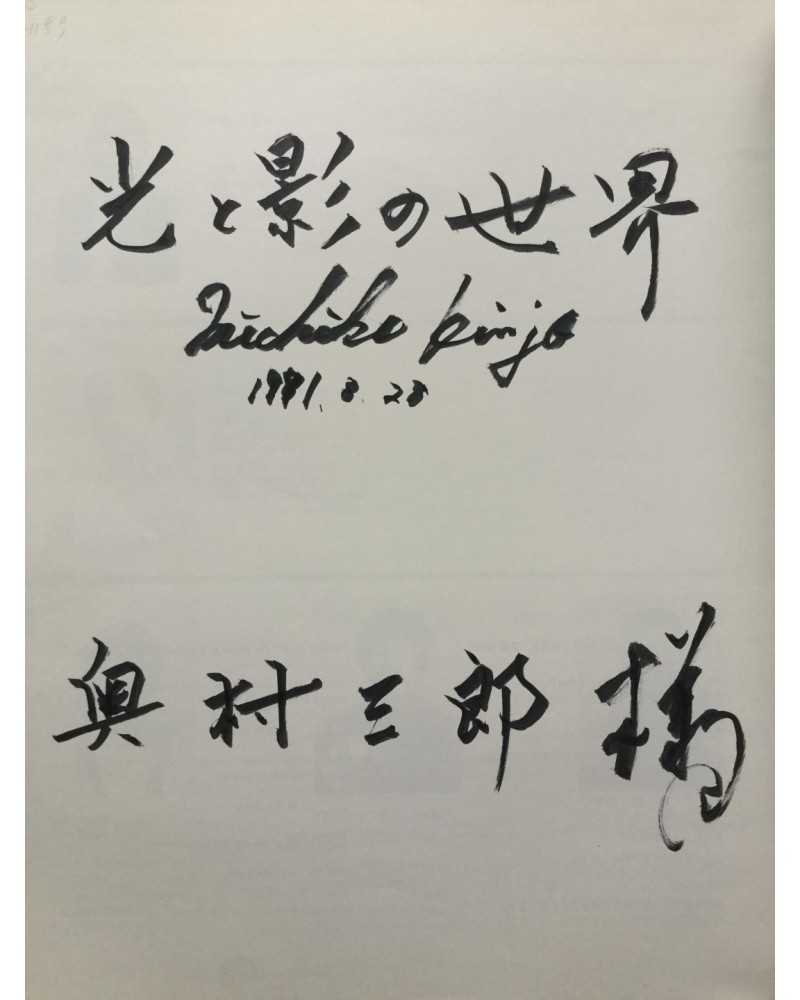 光と影の世界
Michiko Kinjo
1981. 8. 28
奥村三郎様